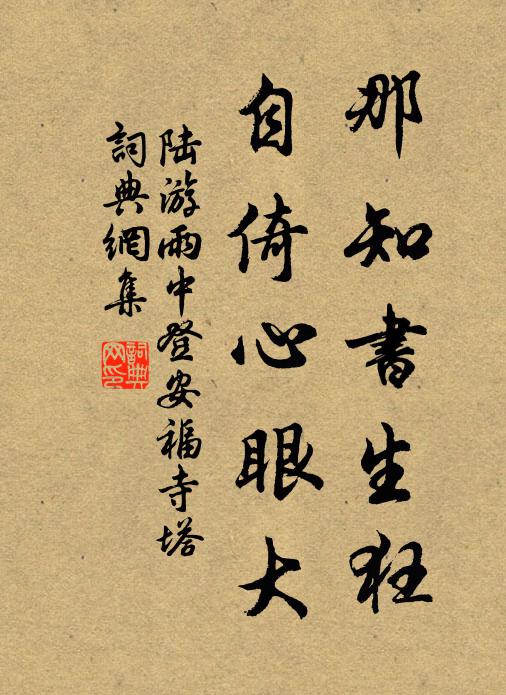 那知書生狂
自倚心眼大
陆游雨中登安福寺塔
詞典網集
詞典網印